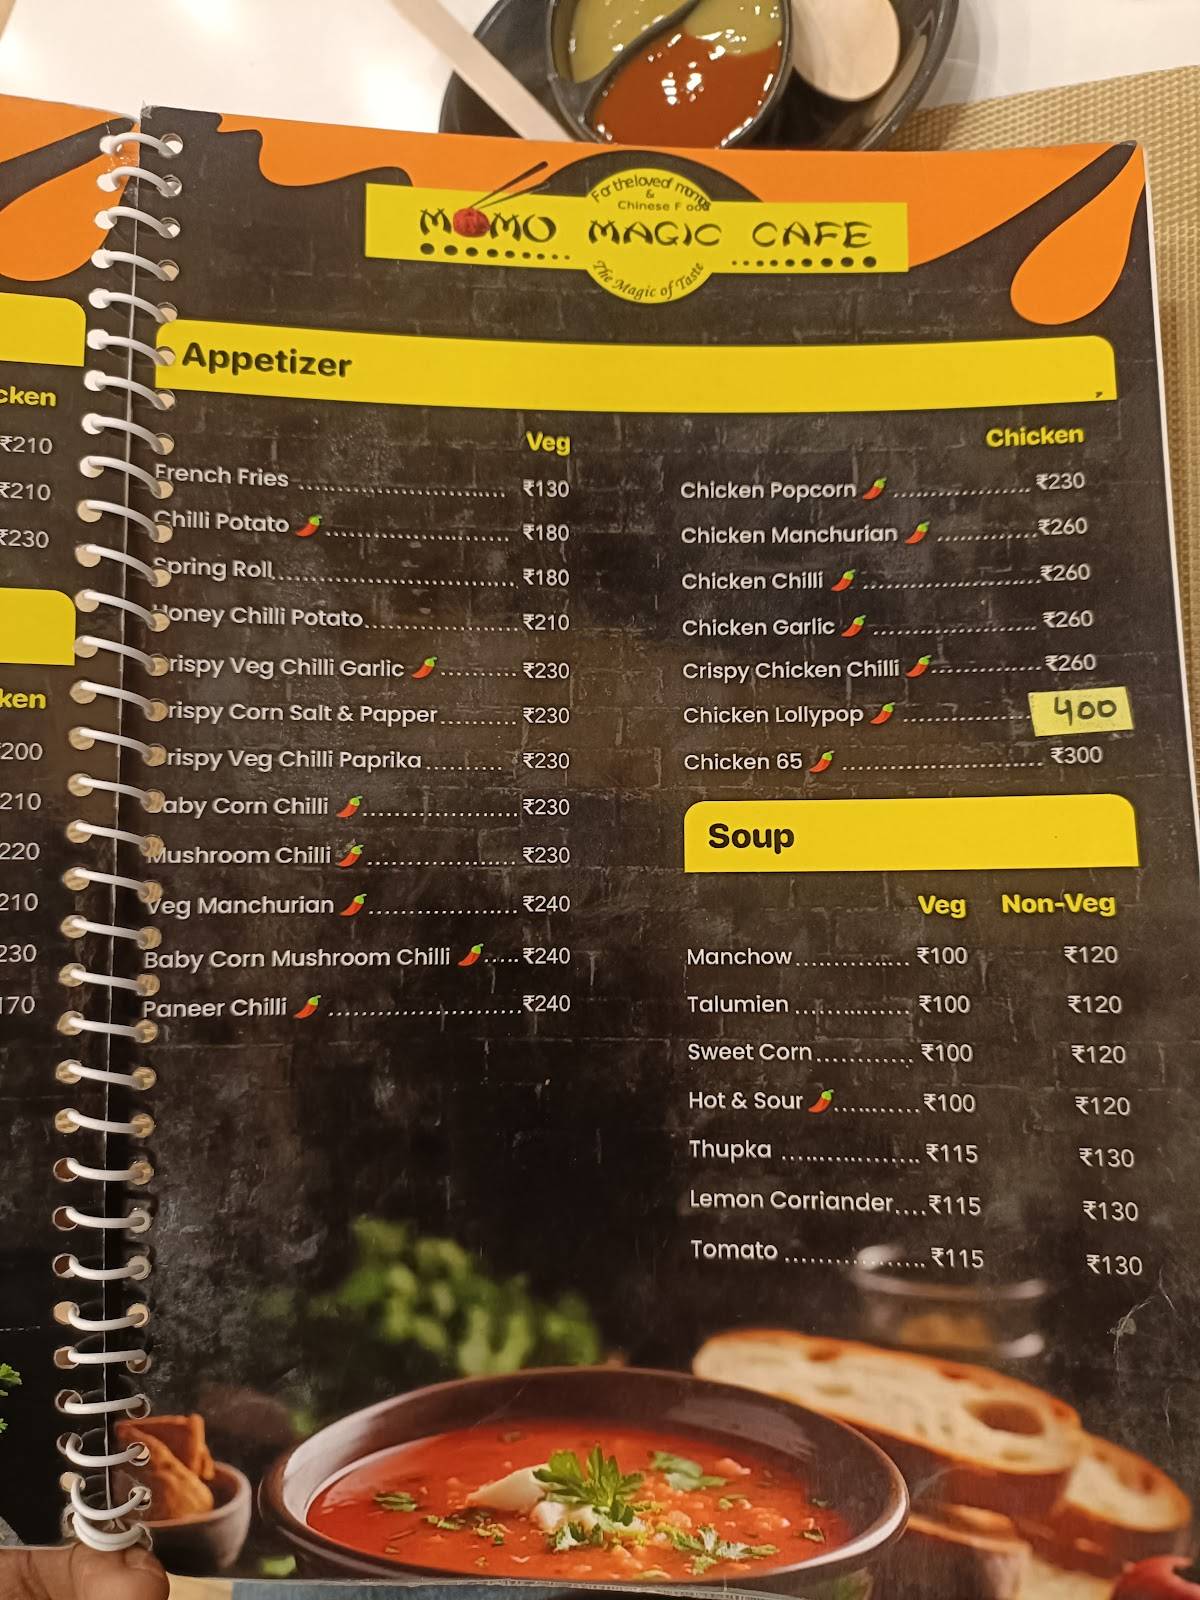 For the love of momos
&
Chinese Food
MOMO MAGIC CAFE
The Magic of Taste
Appetizer
Veg
French Fries ₹130
Chilli Potato ₹180
Spring Roll ₹180
Honey Chilli Potato ₹210
Crispy Veg Chilli Garlic ₹230
Crispy Corn Salt & Papper ₹230
Crispy Veg Chilli Paprika ₹230
Baby Corn Chilli ₹230
Mushroom Chilli ₹230
Veg Manchurian ₹240
Baby Corn Mushroom Chilli ₹240
Paneer Chilli ₹240
Chicken
Chicken Popcorn ₹230
Chicken Manchurian ₹260
Chicken Chilli ₹260
Chicken Garlic ₹260
Crispy Chicken Chilli ₹260
Chicken Lollypop 400
Chicken 65 ₹300
Soup
Veg Non-Veg
Manchow ₹100 ₹120
Talumien ₹100 ₹120
Sweet Corn ₹100 ₹120
Hot & Sour ₹100 ₹120
Thupka ₹115 ₹130
Lemon Corriander ₹115 ₹130
Tomato ₹115 ₹130
cken
₹210
₹210
₹230
ken
200
210
220
210
230
170